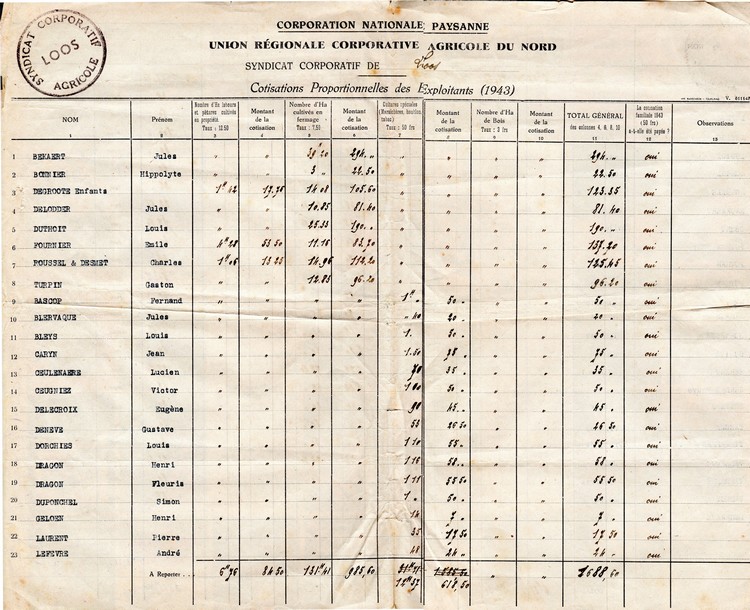 SYNDICAT CORPORATIF AGRICOLE LOOS
CORPORATION NATIONALE PAYSANNE
UNION RÉGIONALE CORPORATIVE AGRICOLE DU NORD
SYNDICAT CORPORATIF DE Loos
Cotisations Proportionnelles des Exploitants (1943)
NOM Prénom Nombre d'Ha labours et pâtures cultivés en propriété. Taux : 12.50 Montant de la cotisation Nombre d'Ha cultivés en fermage Taux : 7.50 Montant de la cotisation Cultures spéciales Taux : 50 frs Montant de la cotisation Nombre d'Ha de Bois Taux : 3 frs Montant de la cotisation TOTAL GÉNÉRAL des colonnes 4, 6, 8, 10 La cotisation familiale 1943 (50 frs) a-t-elle été payée ? Observations
1 2 3 4 5 6 7 8 9 10 11 12 13
1 BEKAERT Jules " " 39 20 294 " " " " " 294 " oui
2 BONNIER Hippolyte " " 3 " 22.50 " " " " 22.50 oui
3 DEGROOTE Enfants 1 42 17.75 14 08 105.60 " " " " 123.35 oui
4 DELODDER Jules " " 10.85 81.40 " " " " 81.40 oui
5 DUTHOIT Louis " " 25.33 190 " " " " " 190 " oui
6 FOURNIER Emile 4 28 53.50 11.16 83.70 " " " " 137.20 oui
7 ROUSSEL & DESMET Charles 1 06 13 25 14.96 112.20 " " " " 125.45 oui
8 TURPIN Gaston " " 12.83 96.20 " " " " 96.20 oui
9 BASCOP Fernand " " " " 1 " 50 " " " 50 " oui
10 BLERVAQUE Jules " " " " " 40 20 " " " 20 " oui
11 BLEYS Louis " " " " 1. 50 . " " 50 . oui
12 CARYN Jean " " " " 1.50 75 " " 75 " oui
13 CEULENAERE Lucien " " " " 70 35 . " " 35 . oui
14 CEUGNIEZ Victor " " " " 1 00 50 " " " 50 . oui
15 DELECROIX Eugène " " " " 90 45 . " " 45 . oui
16 DENEVE Gustave " " " " 53 26 50 " " 26 50 oui
17 DORCHIES Louis " " " " 1 10 55 . " " 55 . oui
18 DRAGON Henri " " " " 1 16 58 . " " 58 . oui
19 DRAGON Fleuris " " " " 1 11 55 50 " " 55 50 oui
20 DUPONCHEL Simon " " " " 1 . 50 . " " 50 . oui
21 GELOEN Henri " " " " 14 7 " " " 7 . oui
22 LAURENT Pierre " " " " 35 17.50 " " 17 50 oui
23 LEFEVRE André " " " " 48 24 " " " 24 . oui
A Reporter . . . 6 76 84.50 131 41 985,60 12 37 618,50 " " 1688,60